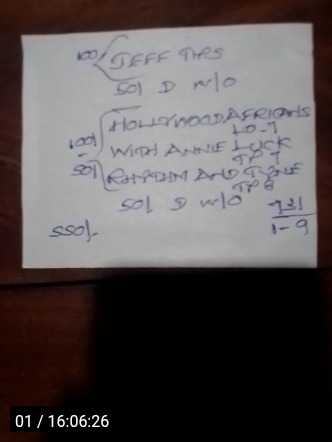 100/ JEFF TIPS
50/ D W/O
HOLLYWOOD AFRICANS
LO-7
100/ WITH ANNIE LUCK
TP 7
50/ RHYTHM AND TUNE
TP 8
50/ D W/O
931
1-9
550/-
01 / 16:06:26